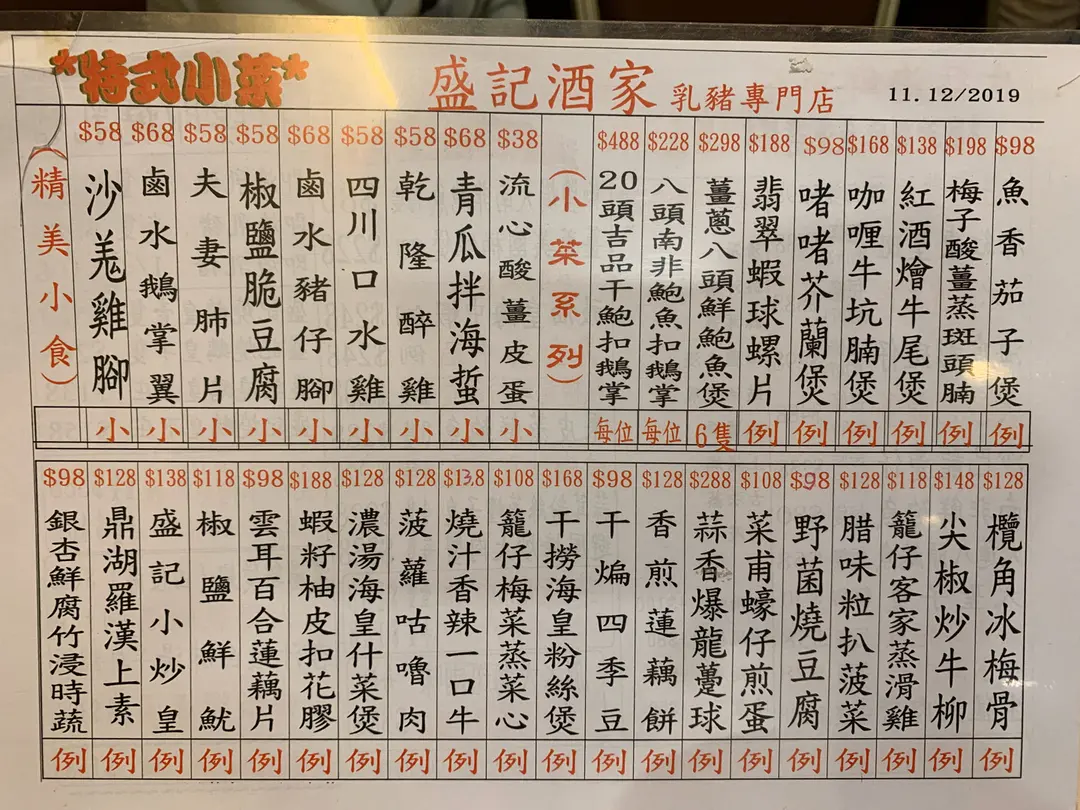 *特式小菜*
盛記酒家 乳豬專門店
11.12/2019
$98 魚香茄子煲 例
$198 梅子酸薑蒸斑頭腩 例
$138 紅酒燴牛尾煲 例
$168 咖喱牛坑腩煲 例
$98 啫啫芥蘭煲 例
$188 翡翠蝦球螺片 例
$298 薑蔥八頭鮮鮑魚煲 6隻
$228 八頭南非鮑魚扣鵝掌 每位
$488 20頭吉品干鮑扣鵝掌 每位
(小菜系列)
$38 流心酸薑皮蛋 小
$68 青瓜拌海蜇 小
$58 乾隆醉雞 小
$58 四川口水雞 小
$68 鹵水豬仔腳 小
$58 椒鹽脆豆腐 小
$58 夫妻肺片 小
$68 鹵水鵝掌翼 小
$58 沙羗雞腳 小
(精美小食)
$128 欖角冰梅骨 例
$148 尖椒炒牛柳 例
$118 籠仔客家蒸滑雞 例
$128 腊味粒扒菠菜 例
$98 野菌燒豆腐 例
$108 菜甫蠔仔煎蛋 例
$288 蒜香爆龍躉球 例
$128 香煎蓮藕餅 例
$98 干煸四季豆 例
$168 干撈海皇粉絲煲 例
$108 籠仔梅菜蒸菜心 例
$138 燒汁香辣一口牛 例
$128 菠蘿咕嚕肉 例
$128 濃湯海皇什菜煲 例
$188 蝦籽柚皮扣花膠 例
$98 雲耳百合蓮藕片 例
$118 椒鹽鮮魷 例
$138 盛記小炒皇 例
$128 鼎湖羅漢上素 例
$98 銀杏鮮腐竹浸時蔬 例